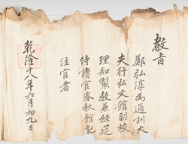 教旨
鄭弘淳為通訓大
夫行弘文館副校
理知製教兼經筵
侍讀官春秋館記
注官者
乾隆十八年六月初九日